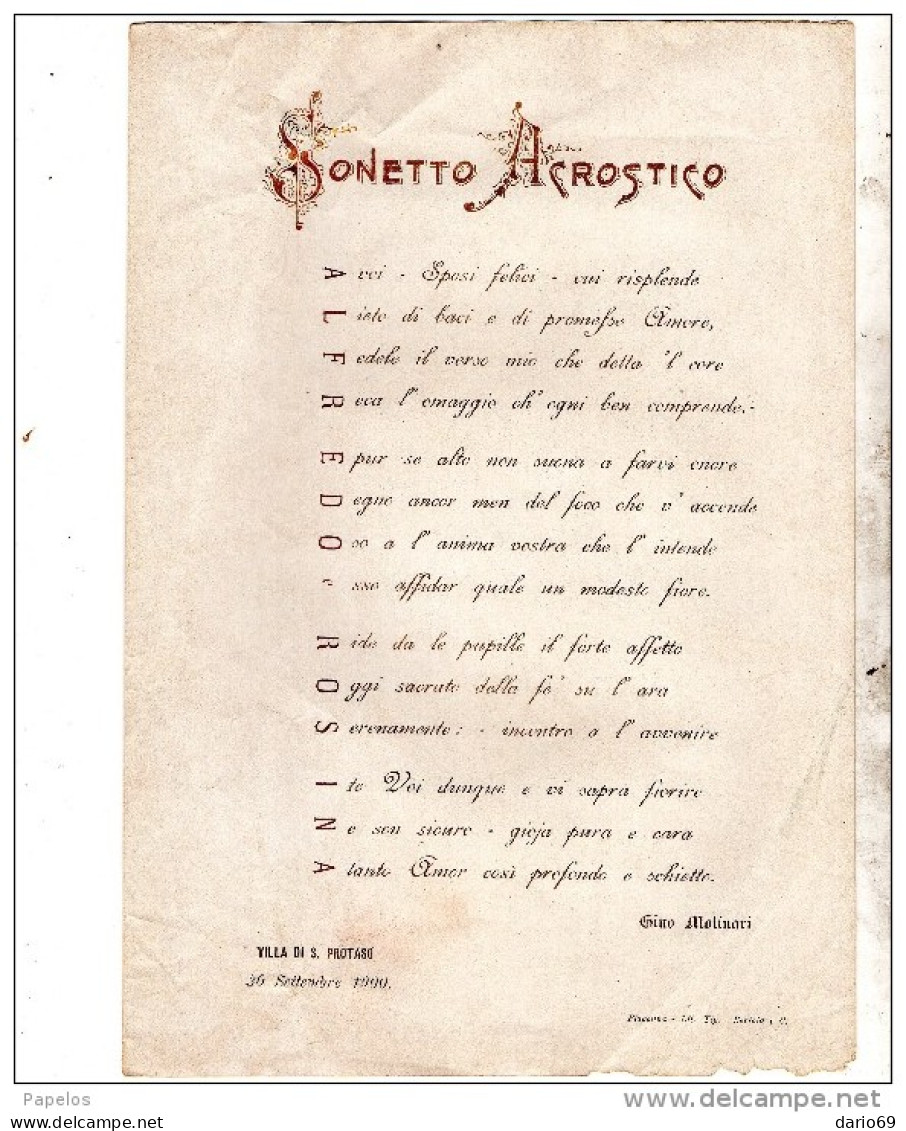 SONETTO ACROSTICO
A voi - Sposi felici - cui risplende
Lieto di baci e di promesse Amore,
Fedele il verso mio che detta 'l core
Reca l' omaggio ch' ogni ben comprende.-
E pur se alto non suona a farvi onore
Degno ancor men del foco che v' accende
Oso a l' anima vostra che l' intende
esso affidar quale un modesto fiore.
Ride da le pupille il forte affetto
Oggi sacrato della fe' su l' ara
Serenamente: - incontro a l' avvenire
Ite Voi dunque e vi sapra fiorire
Ne son sicuro - gioja pura e cara
A tanto Amor così profondo e schietto.
Gino Molinari
VILLA DI S. PROTASO
26 Settembre 1900.
Piacenza - Tip.
Papelos
delcampe.net
dario69